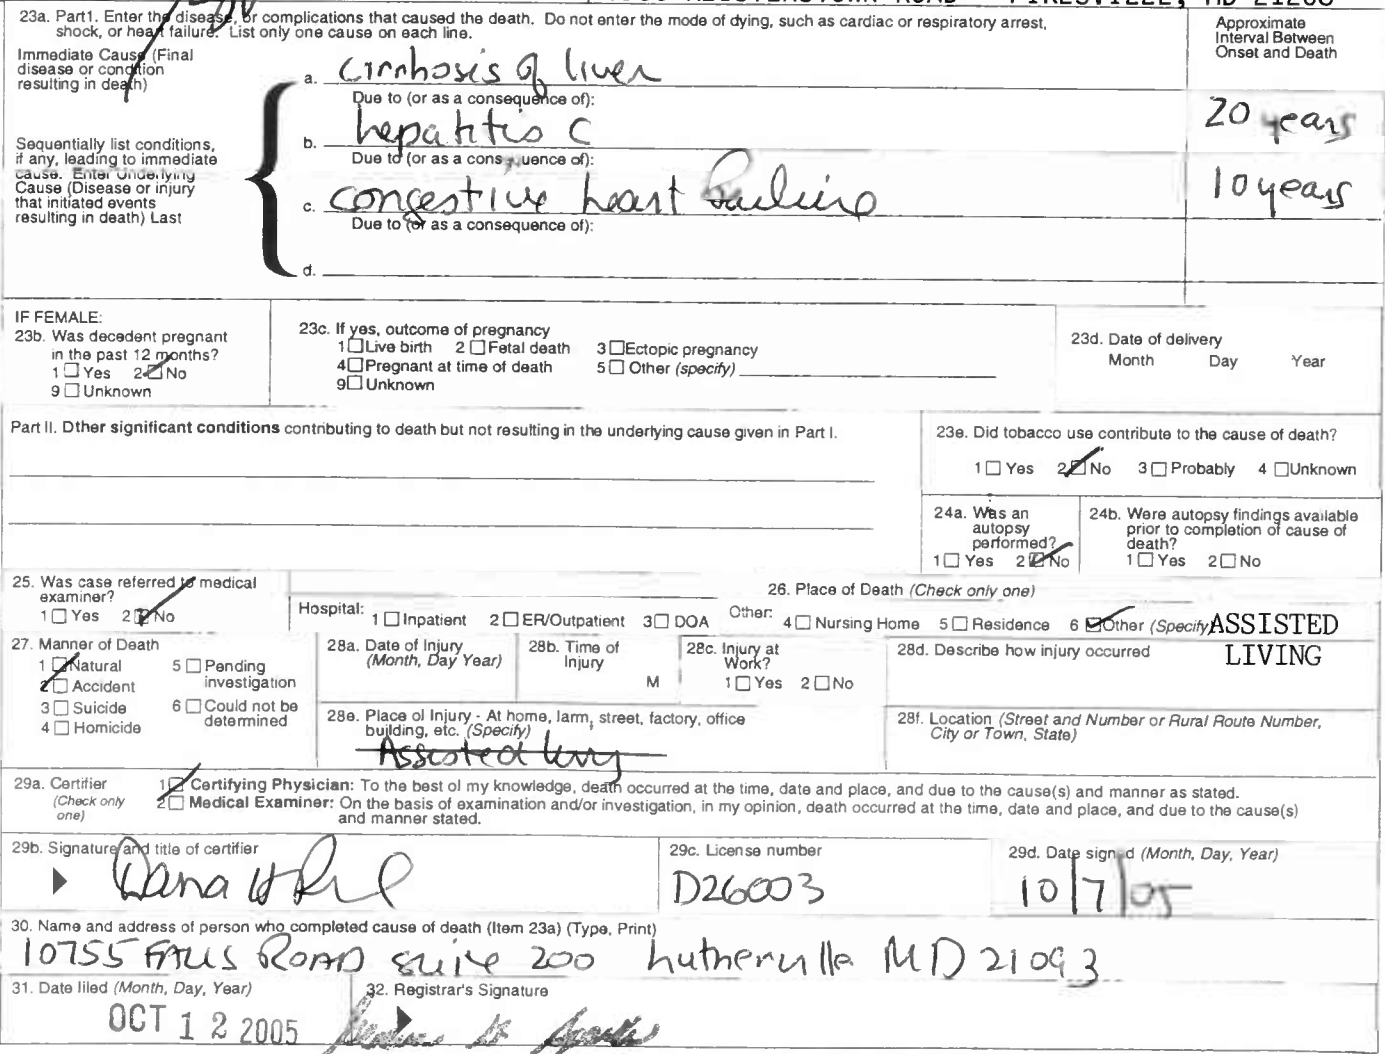 23a. Part1. Enter the disease, or complications that caused the death. Do not enter the mode of dying, such as cardiac or respiratory arrest,
shock, or heart failure. List only one cause on each line.
Approximate
Interval Between
Onset and Death
Immediate Cause (Final
disease or condition
resulting in death)
a. cirrhosis of liver
Due to (or as a consequence of):
20 years
b. hepatitis C
Due to (or as a consequence of):
Sequentially list conditions,
if any, leading to immediate
cause. Enter Underlying
Cause (Disease or injury
that initiated events
resulting in death) Last
10 years
c. congestive heart failure
Due to (or as a consequence of):
d.
IF FEMALE:
23b. Was decedent pregnant
in the past 12 months?
1 Yes 2 No
9 Unknown
23c. If yes, outcome of pregnancy
1 Live birth 2 Fetal death 3 Ectopic pregnancy
4 Pregnant at time of death 5 Other (specify)
9 Unknown
23d. Date of delivery
Month Day Year
Part II. Other significant conditions contributing to death but not resulting in the underlying cause given in Part I.
23e. Did tobacco use contribute to the cause of death?
1 Yes 2 No 3 Probably 4 Unknown
24a. Was an
autopsy
performed?
1 Yes 2 No
24b. Were autopsy findings available
prior to completion of cause of
death?
1 Yes 2 No
25. Was case referred to medical
examiner?
1 Yes 2 No
26. Place of Death (Check only one)
Hospital: 1 Inpatient 2 ER/Outpatient 3 DOA Other: 4 Nursing Home 5 Residence 6 Other (Specify) ASSISTED
LIVING
27. Manner of Death
1 Natural 5 Pending
investigation
2 Accident
3 Suicide 6 Could not be
determined
4 Homicide
28a. Date of Injury
(Month, Day Year)
28b. Time of
Injury
M
28c. Injury at
Work?
1 Yes 2 No
28d. Describe how injury occurred
28e. Place of Injury - At home, farm, street, factory, office
building, etc. (Specify)
Assisted living
28f. Location (Street and Number or Rural Route Number,
City or Town, State)
29a. Certifier
(Check only
one)
1 Certifying Physician: To the best of my knowledge, death occurred at the time, date and place, and due to the cause(s) and manner as stated.
2 Medical Examiner: On the basis of examination and/or investigation, in my opinion, death occurred at the time, date and place, and due to the cause(s)
and manner stated.
29b. Signature and title of certifier
Dana H
29c. License number
D26003
29d. Date signed (Month, Day, Year)
10/7/05
30. Name and address of person who completed cause of death (Item 23a) (Type, Print)
10755 FALLS ROAD suite 200 Lutherville MD 21093
31. Date filed (Month, Day, Year)
OCT 12 2005
32. Registrar's Signature